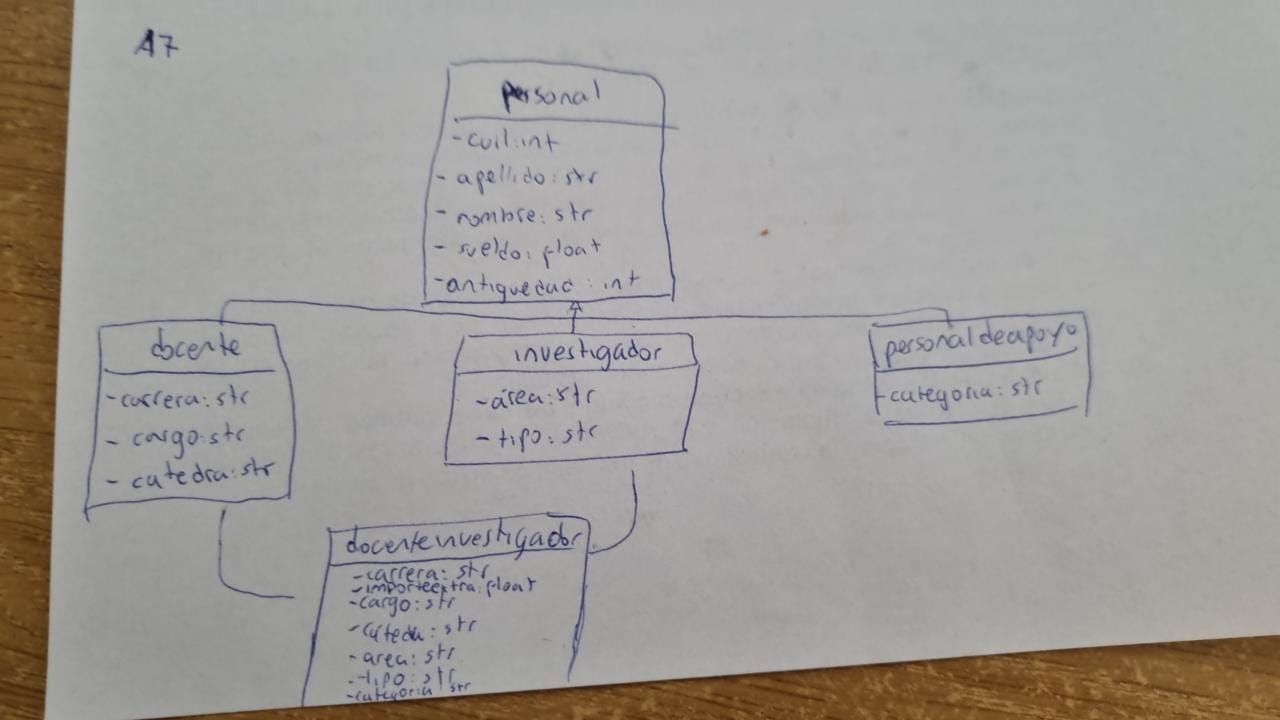 A7
personal
-cuil:int
- apellido:str
- nombre: str
- sueldo: float
-antiguedad: int
docente
-carrera: str
- cargo:str
- catedra:str
investigador
-área:str
-tipo: str
personaldeapoyo
-categoria: str
docenteinvestigador
-carrera: str
-importeextra:float
-cargo: str
-cáteda: str
-area: str
-tipo: str
-categoria str